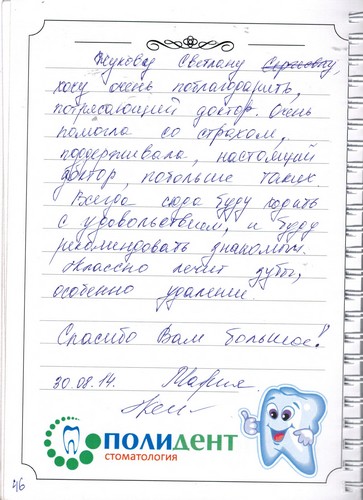 Жукову Светлану Сергеевну,
хочу очень поблагодарить,
потрясающий доктор. Очень
помогла со страхом,
поддерживала, настоящий
доктор, побольше таких.
Всегда сюда буду ходить
с удовольствием, и буду
рекомендовать знакомым.
Классно лечит зубы,
особенно удаление.
Спасибо Вам большое!
30.08.14. Мария.
ПОЛИДЕНТ
СТОМАТОЛОГИЯ
46